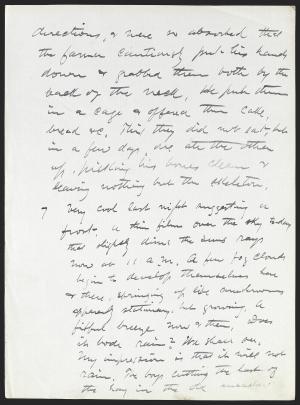 directions, & were so absorbed that
the farmer cautiously put his hands
down & grabbed them both by the
back of the neck. He put them
in a cage & offered them cake,
bread &c. This they did not eat, but
in a few days, one ate the other
up, picking his bones clean &
leaving nothing but the skeleton.
7 Very cool last night suggesting a
frost. A thin film over the sky today
that slightly dims the suns rays
now at 11 a.m. A few fog clouds
begin to develop themselves here
& there, springing up like mushrooms
apparently stationary, but growing. A
fitful breeze now & then. Does
it bode rain? We shall see.
My impression is that it will not
rain. The boys cutting the last of
the hay in the old